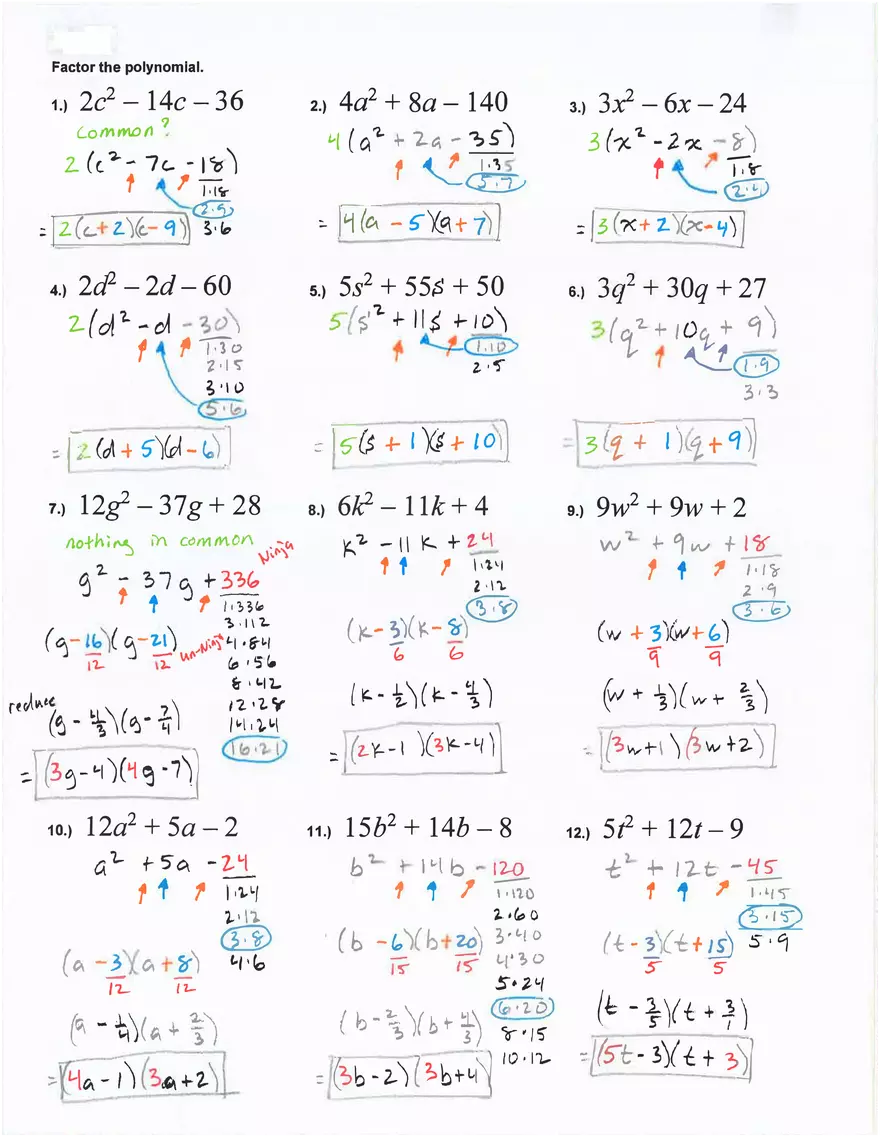 Factor the polynomial.
1.) 2c² – 14c – 36
common?
2(c² - 7c - 18)
1·18
2·9
3·6
= 2(c+2)(c-9)
2.) 4a² + 8a – 140
4(a² + 2a - 35)
1·35
5·7
= 4(a - 5)(a + 7)
3.) 3x² – 6x – 24
3(x² - 2x - 8)
1·8
2·4
= 3(x+2)(x-4)
4.) 2d² – 2d – 60
2(d² - d - 30)
1·30
2·15
3·10
5·6
= 2(d+5)(d-6)
5.) 5s² + 55s + 50
5(s² + 11s + 10)
1·10
2·5
= 5(s + 1)(s + 10)
6.) 3q² + 30q + 27
3(q² + 10q + 9)
1·9
3·3
= 3(q + 1)(q + 9)
7.) 12g² – 37g + 28
nothing in common
Ninja
g² - 37g + 336
1·336
3·112
(g-16)(g-21) un-Ninja 4·84
12 12
6·56
8·42
12·28
14·24
16·21
reduce
(g - 4/3)(g - 7/4)
= (3g-4)(4g-7)
8.) 6k² – 11k + 4
k² - 11k + 24
1·24
2·12
3·8
(k-3)(k-8)
6 6
(k - 1/2)(k - 4/3)
= (2k-1)(3k-4)
9.) 9w² + 9w + 2
w² + 9w + 18
1·18
2·9
3·6
(w+3)(w+6)
9 9
(w + 1/3)(w + 2/3)
= (3w+1)(3w+2)
10.) 12a² + 5a – 2
a² + 5a - 24
1·24
2·12
3·8
4·6
(a - 3)(a + 8)
12 12
(a - 1/4)(a + 2/3)
= (4a-1)(3a+2)
11.) 15b² + 14b – 8
b² + 14b - 120
1·120
2·60
(b - 6)(b + 20) 3·40
15 15
4·30
5·24
6·20
(b - 2/3)(b + 4/3)
8·15
10·12
= (3b-2)(3b+4)
12.) 5t² + 12t – 9
t² + 12t - 45
1·45
3·15
(t - 3)(t + 15) 5·9
5 5
(t - 3/5)(t + 3/1)
= (5t-3)(t+3)